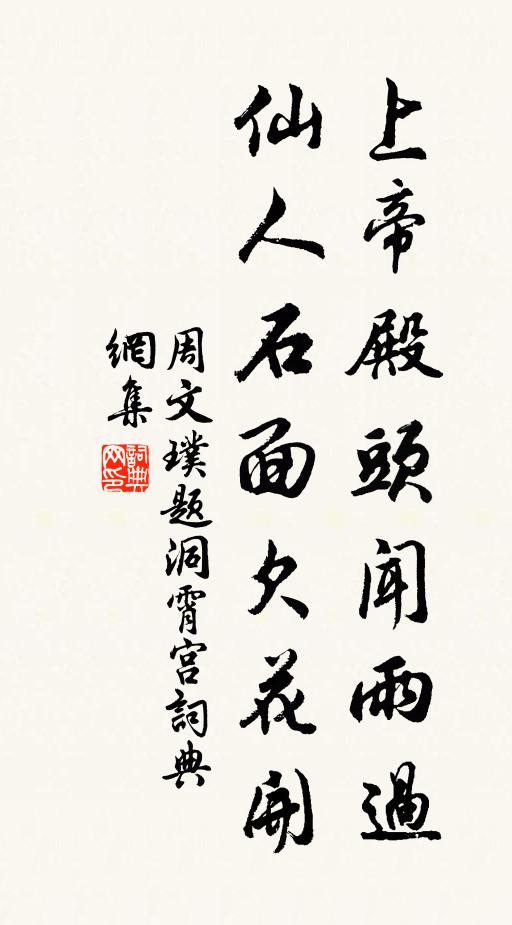 上帝殿頭聞雨過
仙人石面欠花開
周文璞題洞霄宮詞典
網集
詞典网印